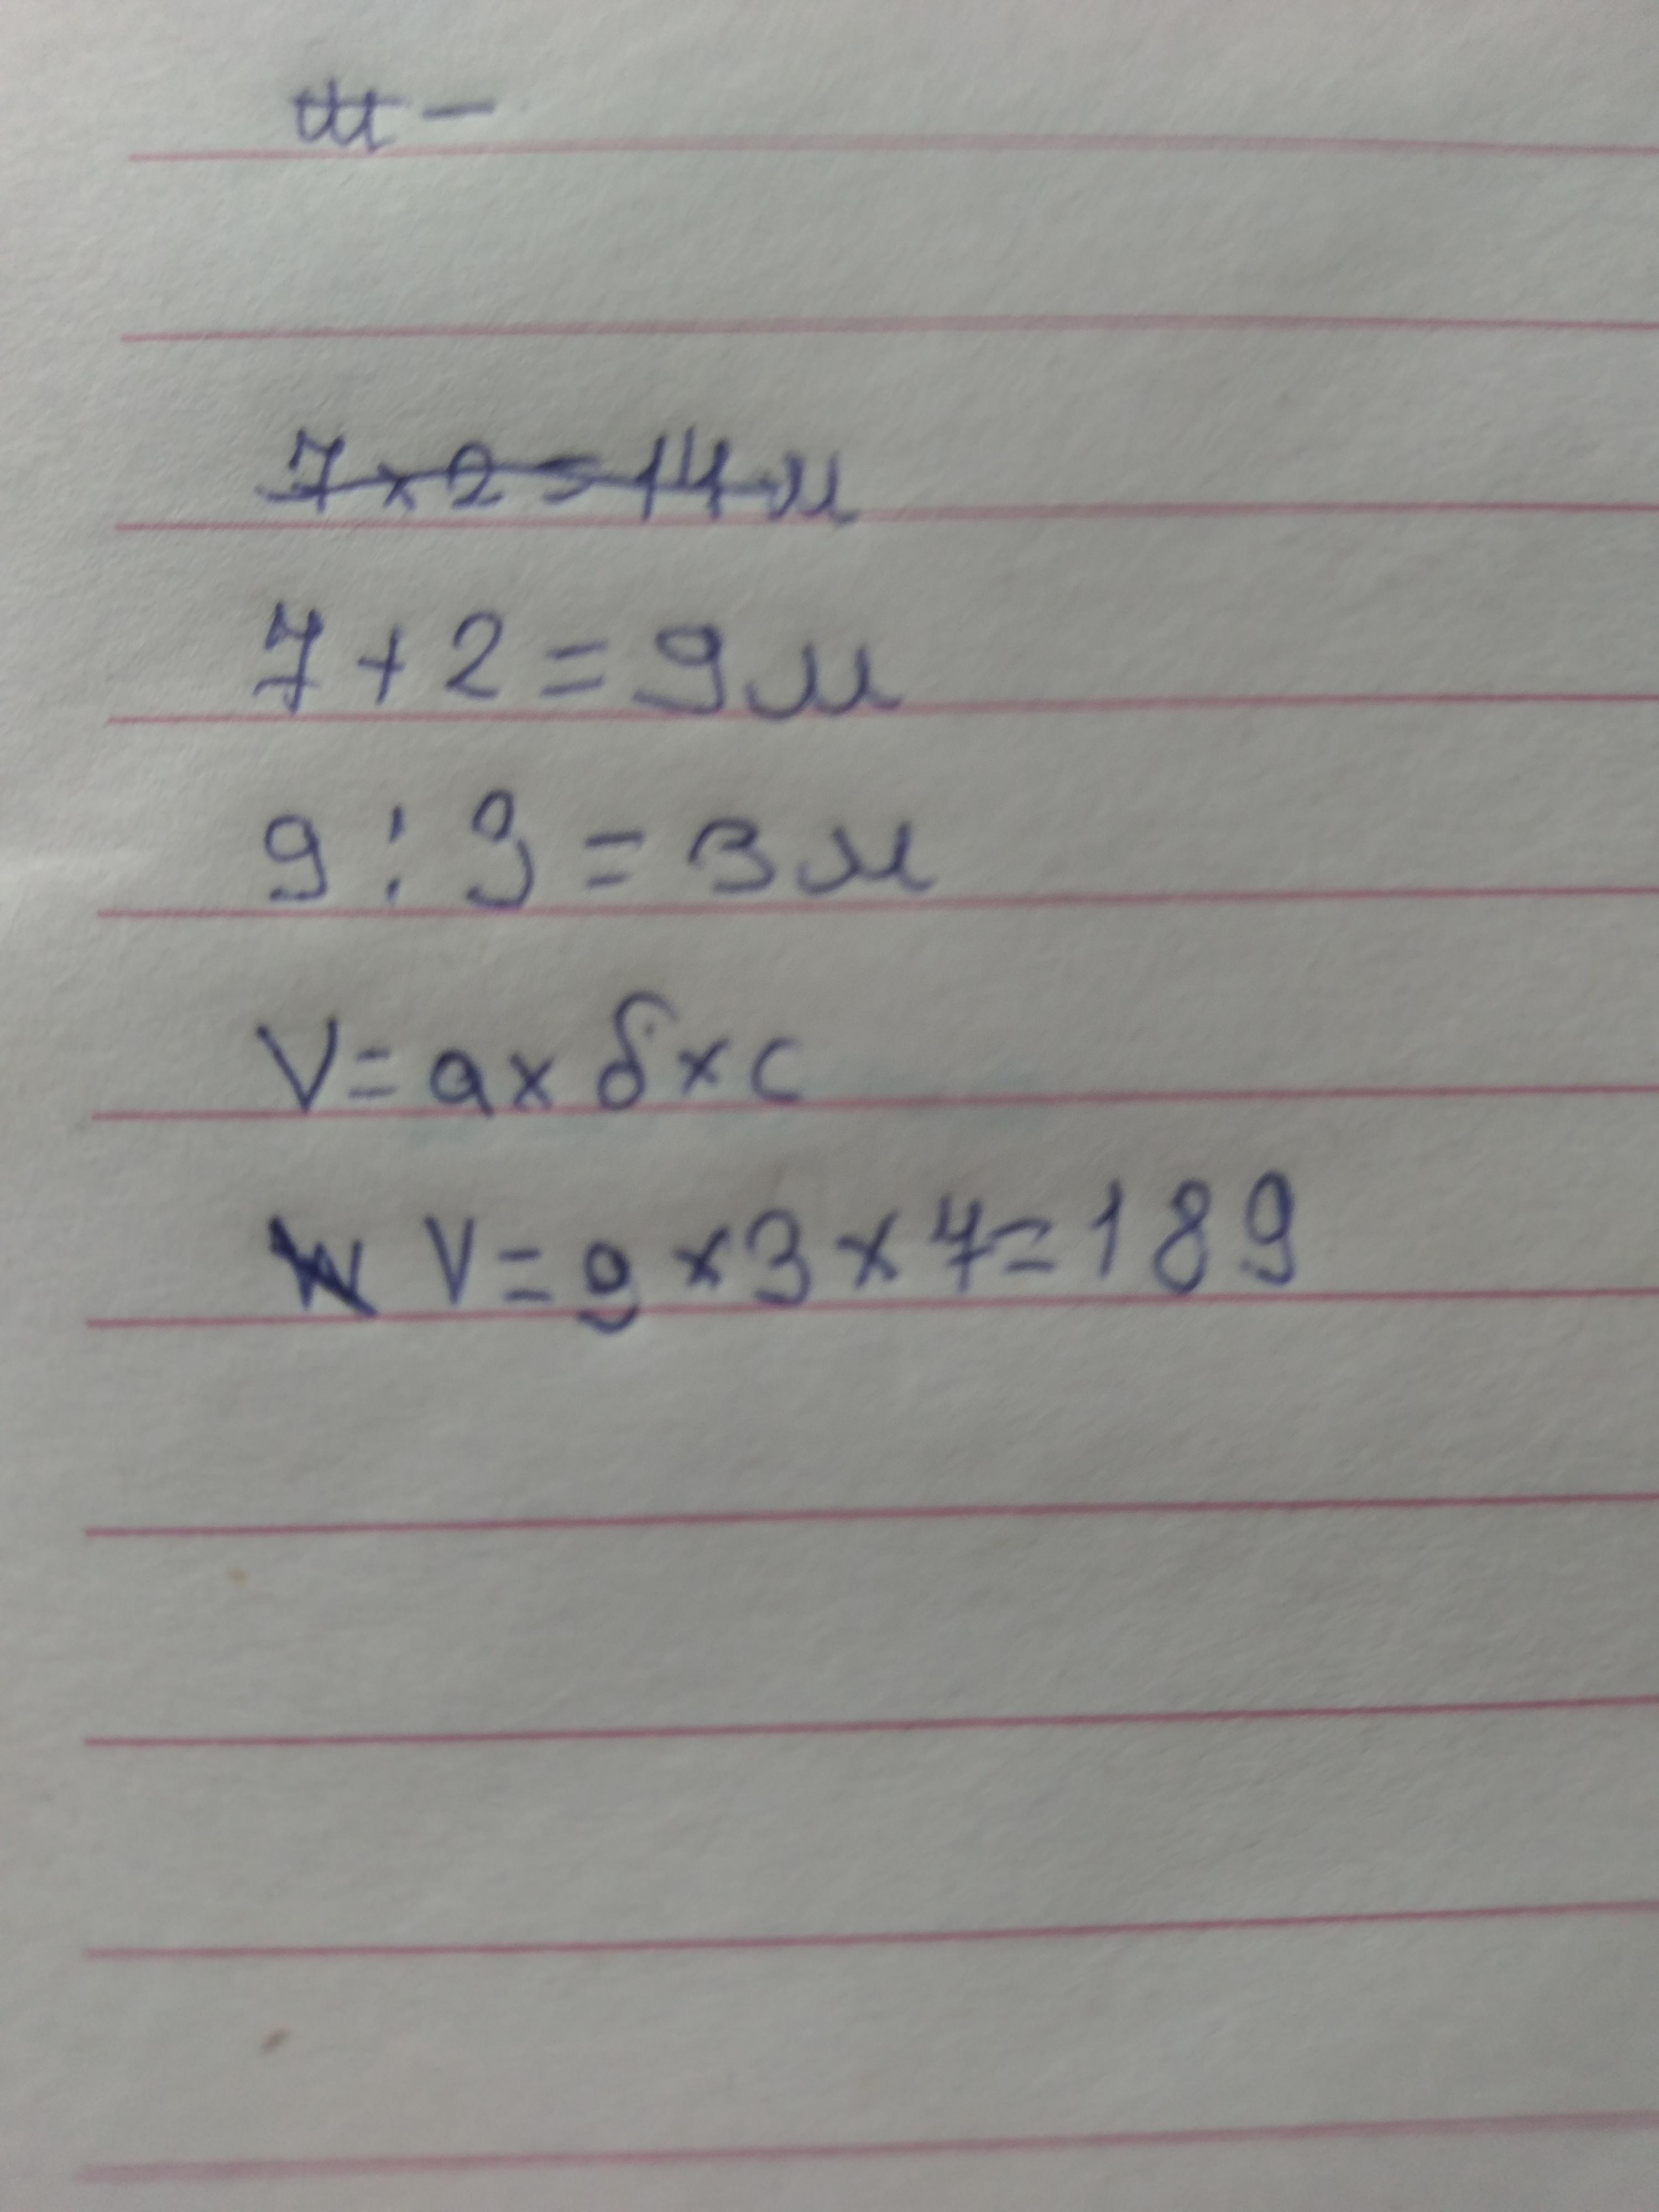 Ш —
7 × 2 = 14 м
7 + 2 = 9 м
9 : 3 = 3 м
V = a × б × c
V = 9 × 3 × 7 = 189